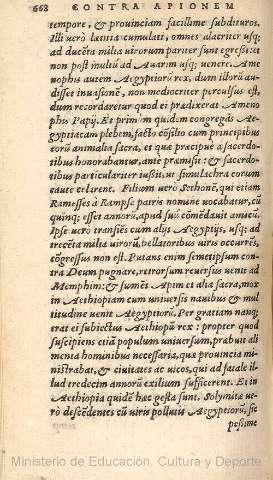 668 CONTRA APIONEM
tempore, & prouinciam facillime subdituros.
Illi uerò lætitia cumulati, omnes alacriter usq;
ad ducēta milia uirorum pariter sunt egressi: et
non post multū ad Auarim usq; uenere. Ame
nophis autem Aegyptiorū rex, dum illorū au-
disset inuasionē, non mediocriter perculsus est,
dum recordaretur quod ei prædixerat Ameno
phis Papij. Et primùm quidem congregās Ae-
gyptiacam plebem, facto cōsilio cum principibus
eorū animalia sacra, et quæ præcipuè à sacerdo-
tibus honorabantur, ante præmisit: & sacerdo-
tibus particulariter iussit, ut simulachra eorum
caute celarent. Filium uerò Sethonē, qui etiam
Ramesses à Rampse patris nomine uocabatur, cū
quinq; esset annorū, apud suū cōmēdauit amicū.
Ipse uerò transiēs cum alijs Aegyptijs, usq; ad
trecēta milia uirorū, bellatoribus uiris occurrēs,
cōgressus non est. Putans enim semetipsum con-
tra Deum pugnare, retrorsum reuersus uenit ad
Memphim: & sumēs Apim et alia sacra, mox
in Aethiopiam cum uniuersis nauibus & mul
titudine uenit Aegyptiorū. Per gratiam nanq;
erat ei subiectus Aethiopū rex: propter quod
suscipiens etiā populum uniuersum, præbuit ali
menta hominibus necessaria, quæ prouincia mi-
nistrabat, & ciuitates ac uicos, qui ad fatale il-
lud tredecim annorū exilium sufficerent. Et in
Aethiopia quidē hæc gesta sunt. Solymitæ ue-
rò descēdētes cū uiris pollutis Aegyptiorū, sic
pessime
Ministerio de Educación, Cultura y Deporte